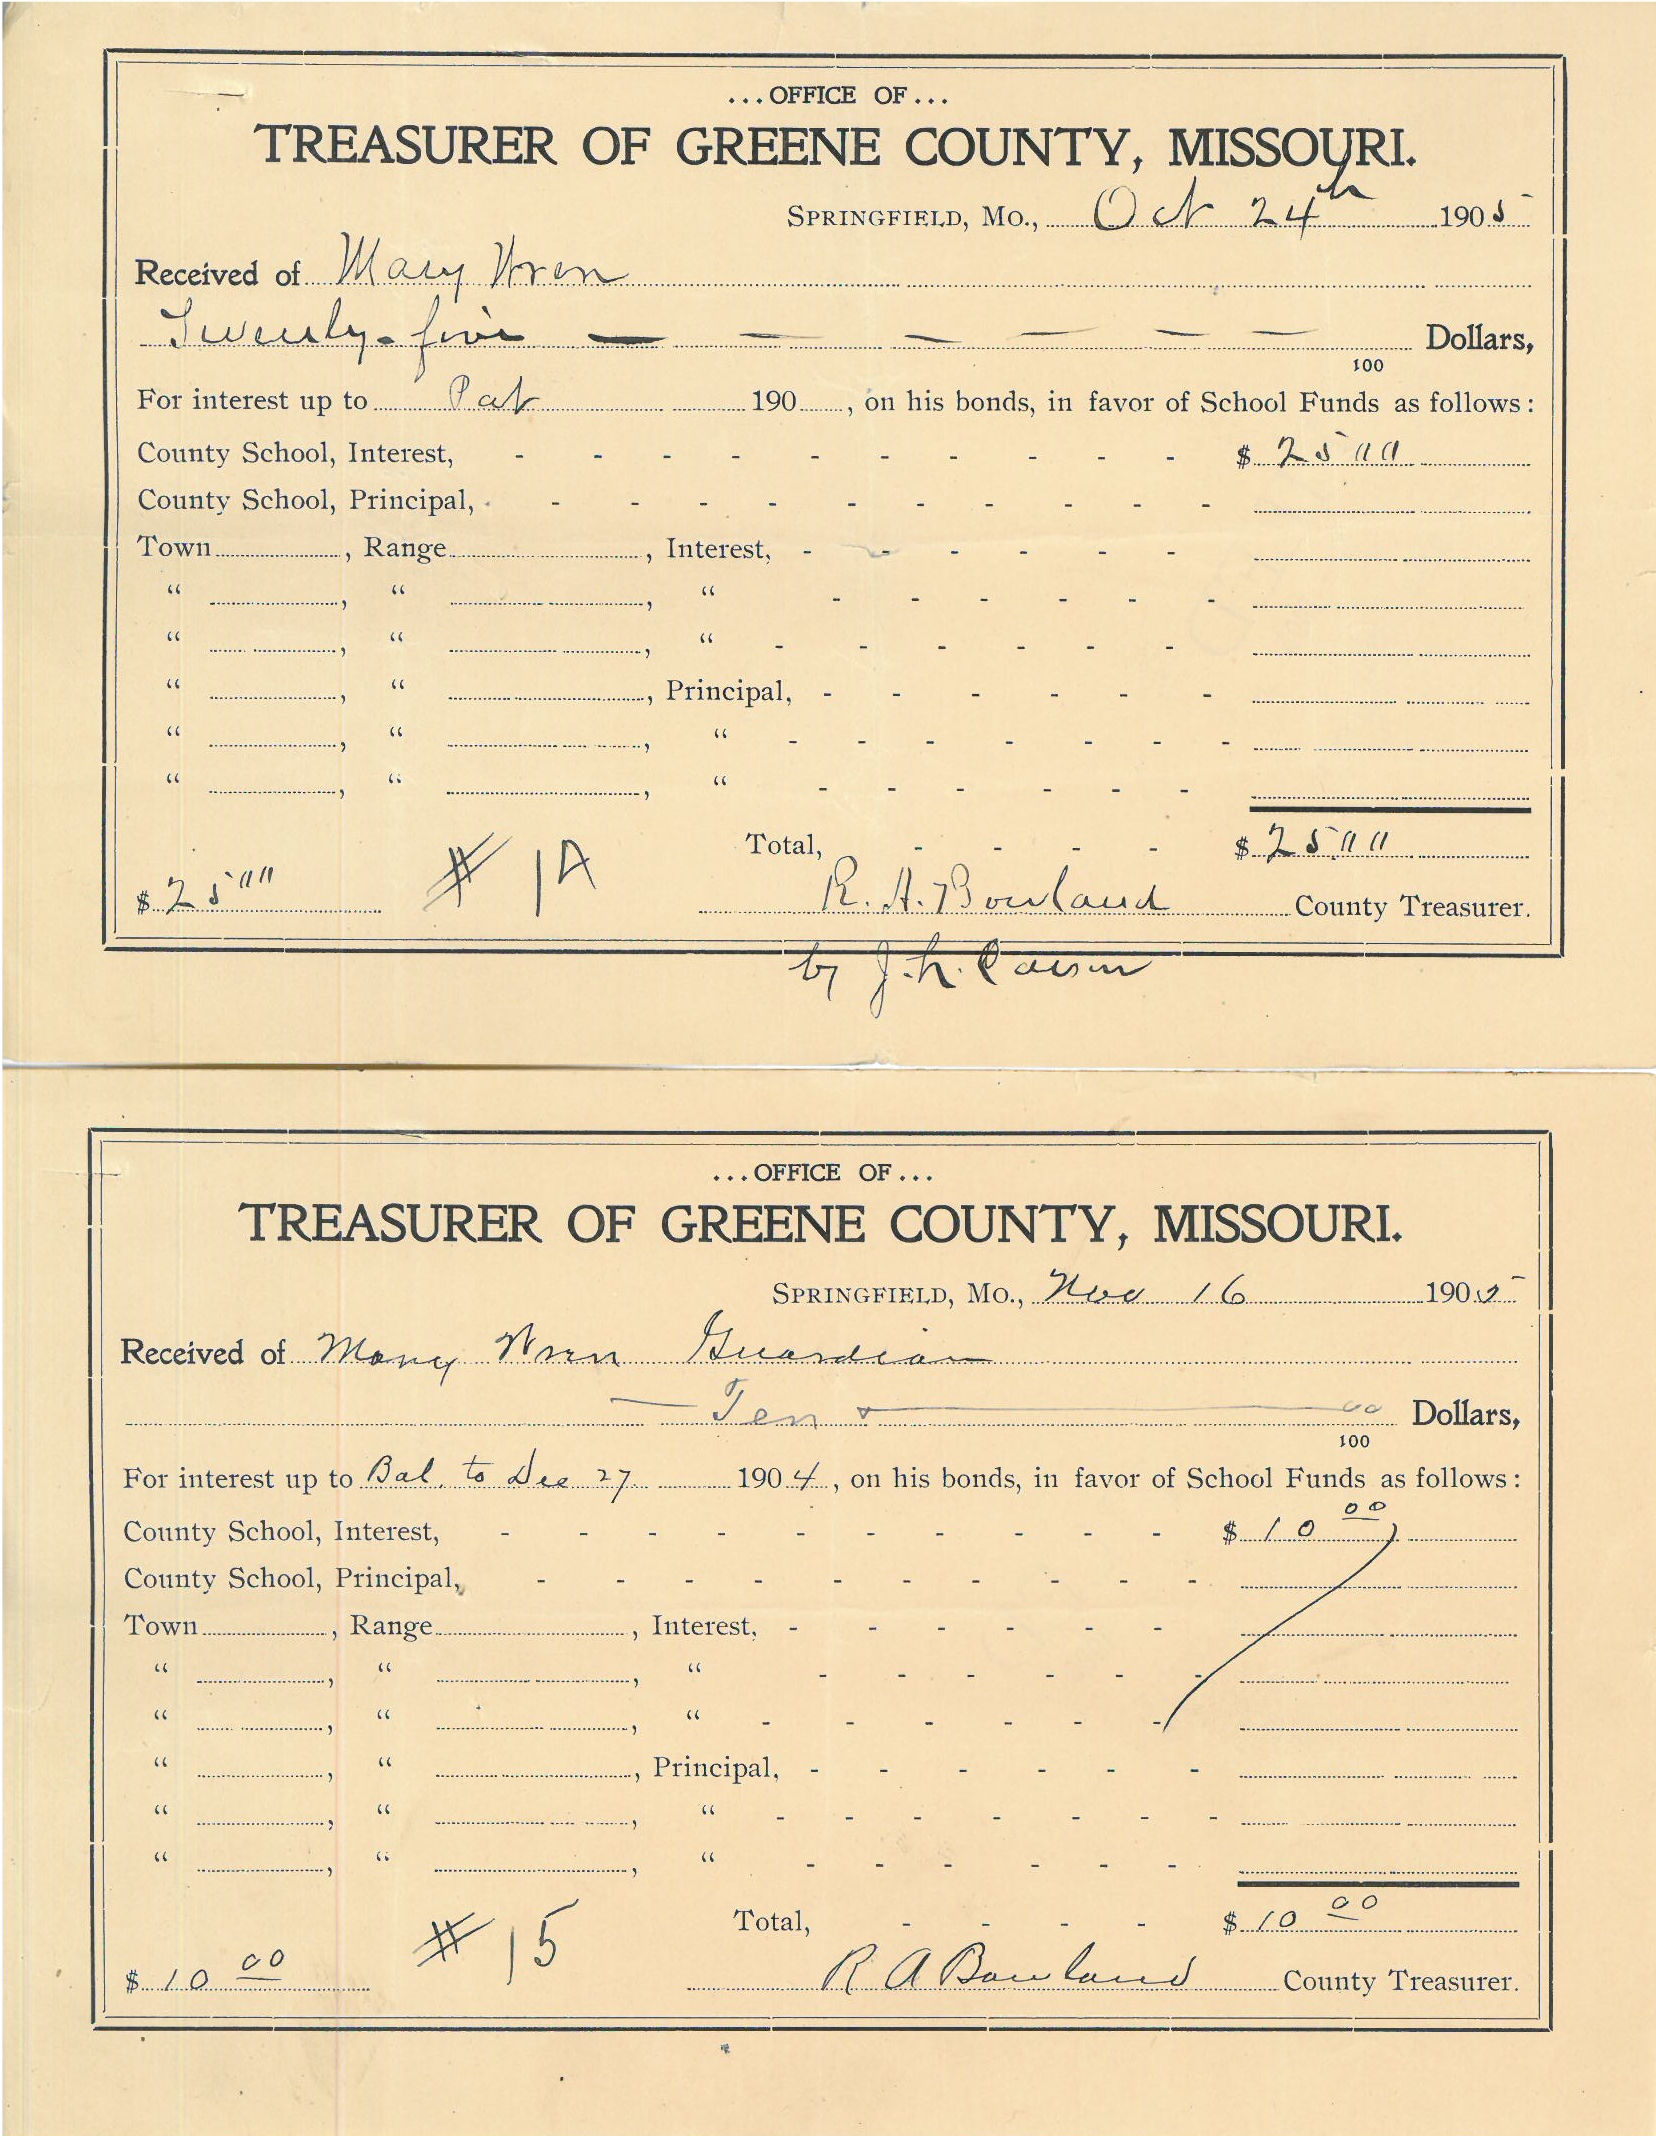 ...OFFICE OF...
TREASURER OF GREENE COUNTY, MISSOURI.
SPRINGFIELD, MO., Oct 24th 1905
Received of Mary Wren
Twenty-five — — — — — — Dollars,
100
For interest up to 190 , on his bonds, in favor of School Funds as follows:
County School, Interest, - - - - - - - - - - $ 25 00
County School, Principal, - - - - - - - - - -
Town , Range , Interest, - - - - - -
“ , “ , “ - - - - - -
“ , “ , “ - - - - - -
“ , “ , Principal, - - - - - -
“ , “ , “ - - - - - - -
“ , “ , “ - - - - - -
Total, - - - - $ 25 00
$ 25 00 # 14 R. A. Bowland County Treasurer.
by J. H.
...OFFICE OF...
TREASURER OF GREENE COUNTY, MISSOURI.
SPRINGFIELD, MO., Nov 16 1905
Received of Mary Wren Guardian
— Ten — 00 Dollars,
100
For interest up to Bal. to Dec 27 1904, on his bonds, in favor of School Funds as follows:
County School, Interest, - - - - - - - - - - $ 10 00
County School, Principal, - - - - - - - - - -
Town , Range , Interest, - - - - - -
“ , “ , “ - - - - - -
“ , “ , “ - - - - - -
“ , “ , Principal, - - - - - -
“ , “ , “ - - - - - - -
“ , “ , “ - - - - - -
Total, - - - - $ 10 00
$ 10 00 # 15 R A Bowland County Treasurer.